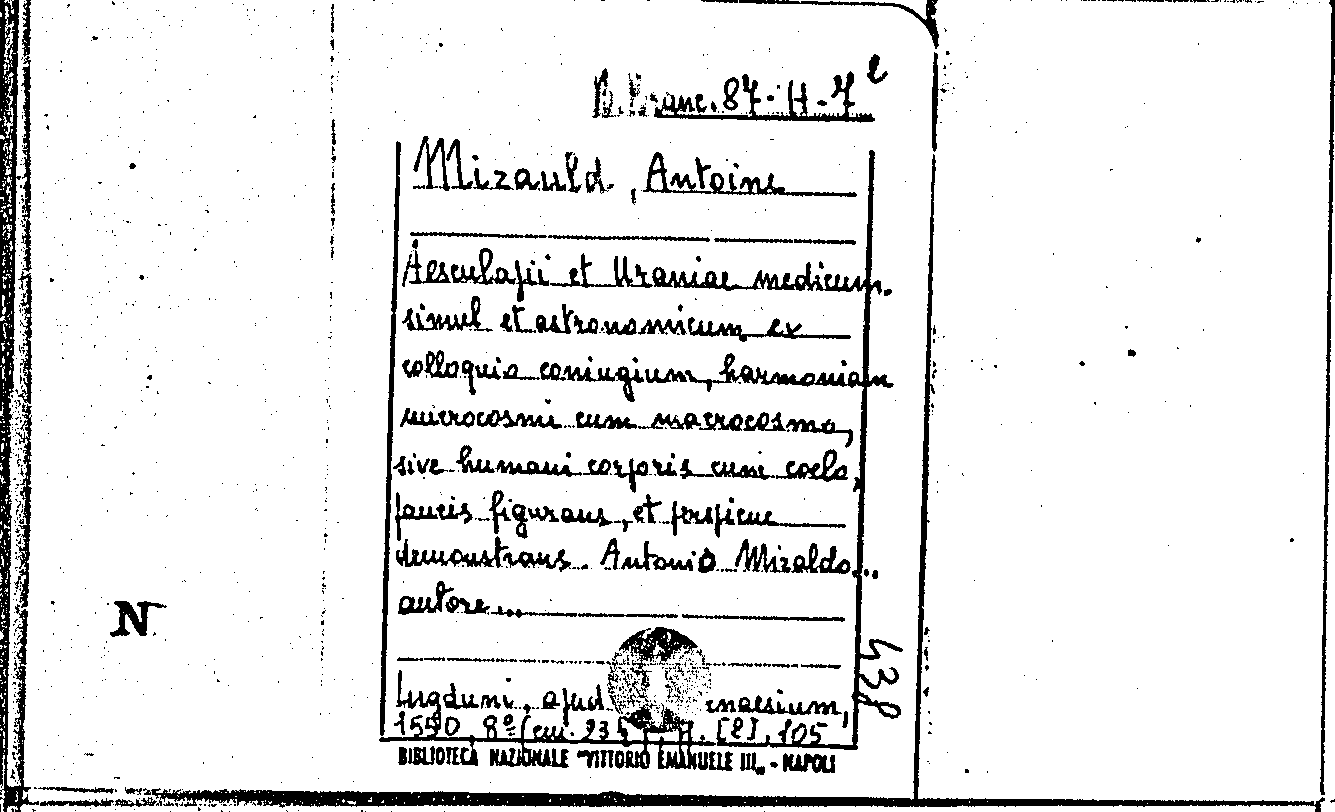 B. Branc. 87-H-7 e
Mizauld, Antoine
Aesculapii et Uraniae medicum.
simul et astronomicum ex
colloquio coniugium, harmoniam
microcosmi cum macrocosmo,
sive humani corporis cum coelo,
paucis figurans, et perspicue
demonstrans. Antonio Mizaldo...
autore...
Lugduni, apud
1550, 8º (cm. [2], 105
BIBLIOTECA NAZIONALE "VITTORIO EMANUELE III„ - NAPOLI
438
N